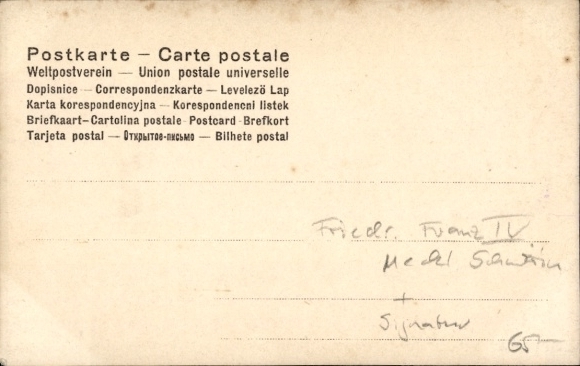 Postkarte — Carte postale
Weltpostverein — Union postale universelle
Dopisnice — Correspondenzkarte — Levelező Lap
Karta korespondencyjna — Korespondencni listek
Briefkaart — Cartolina postale — Postcard — Brefkort
Tarjeta postal — Открытое-письмо — Bilhete postal
Friedr. Franz IV
Meckl Schwerin
+
Signatur
65-